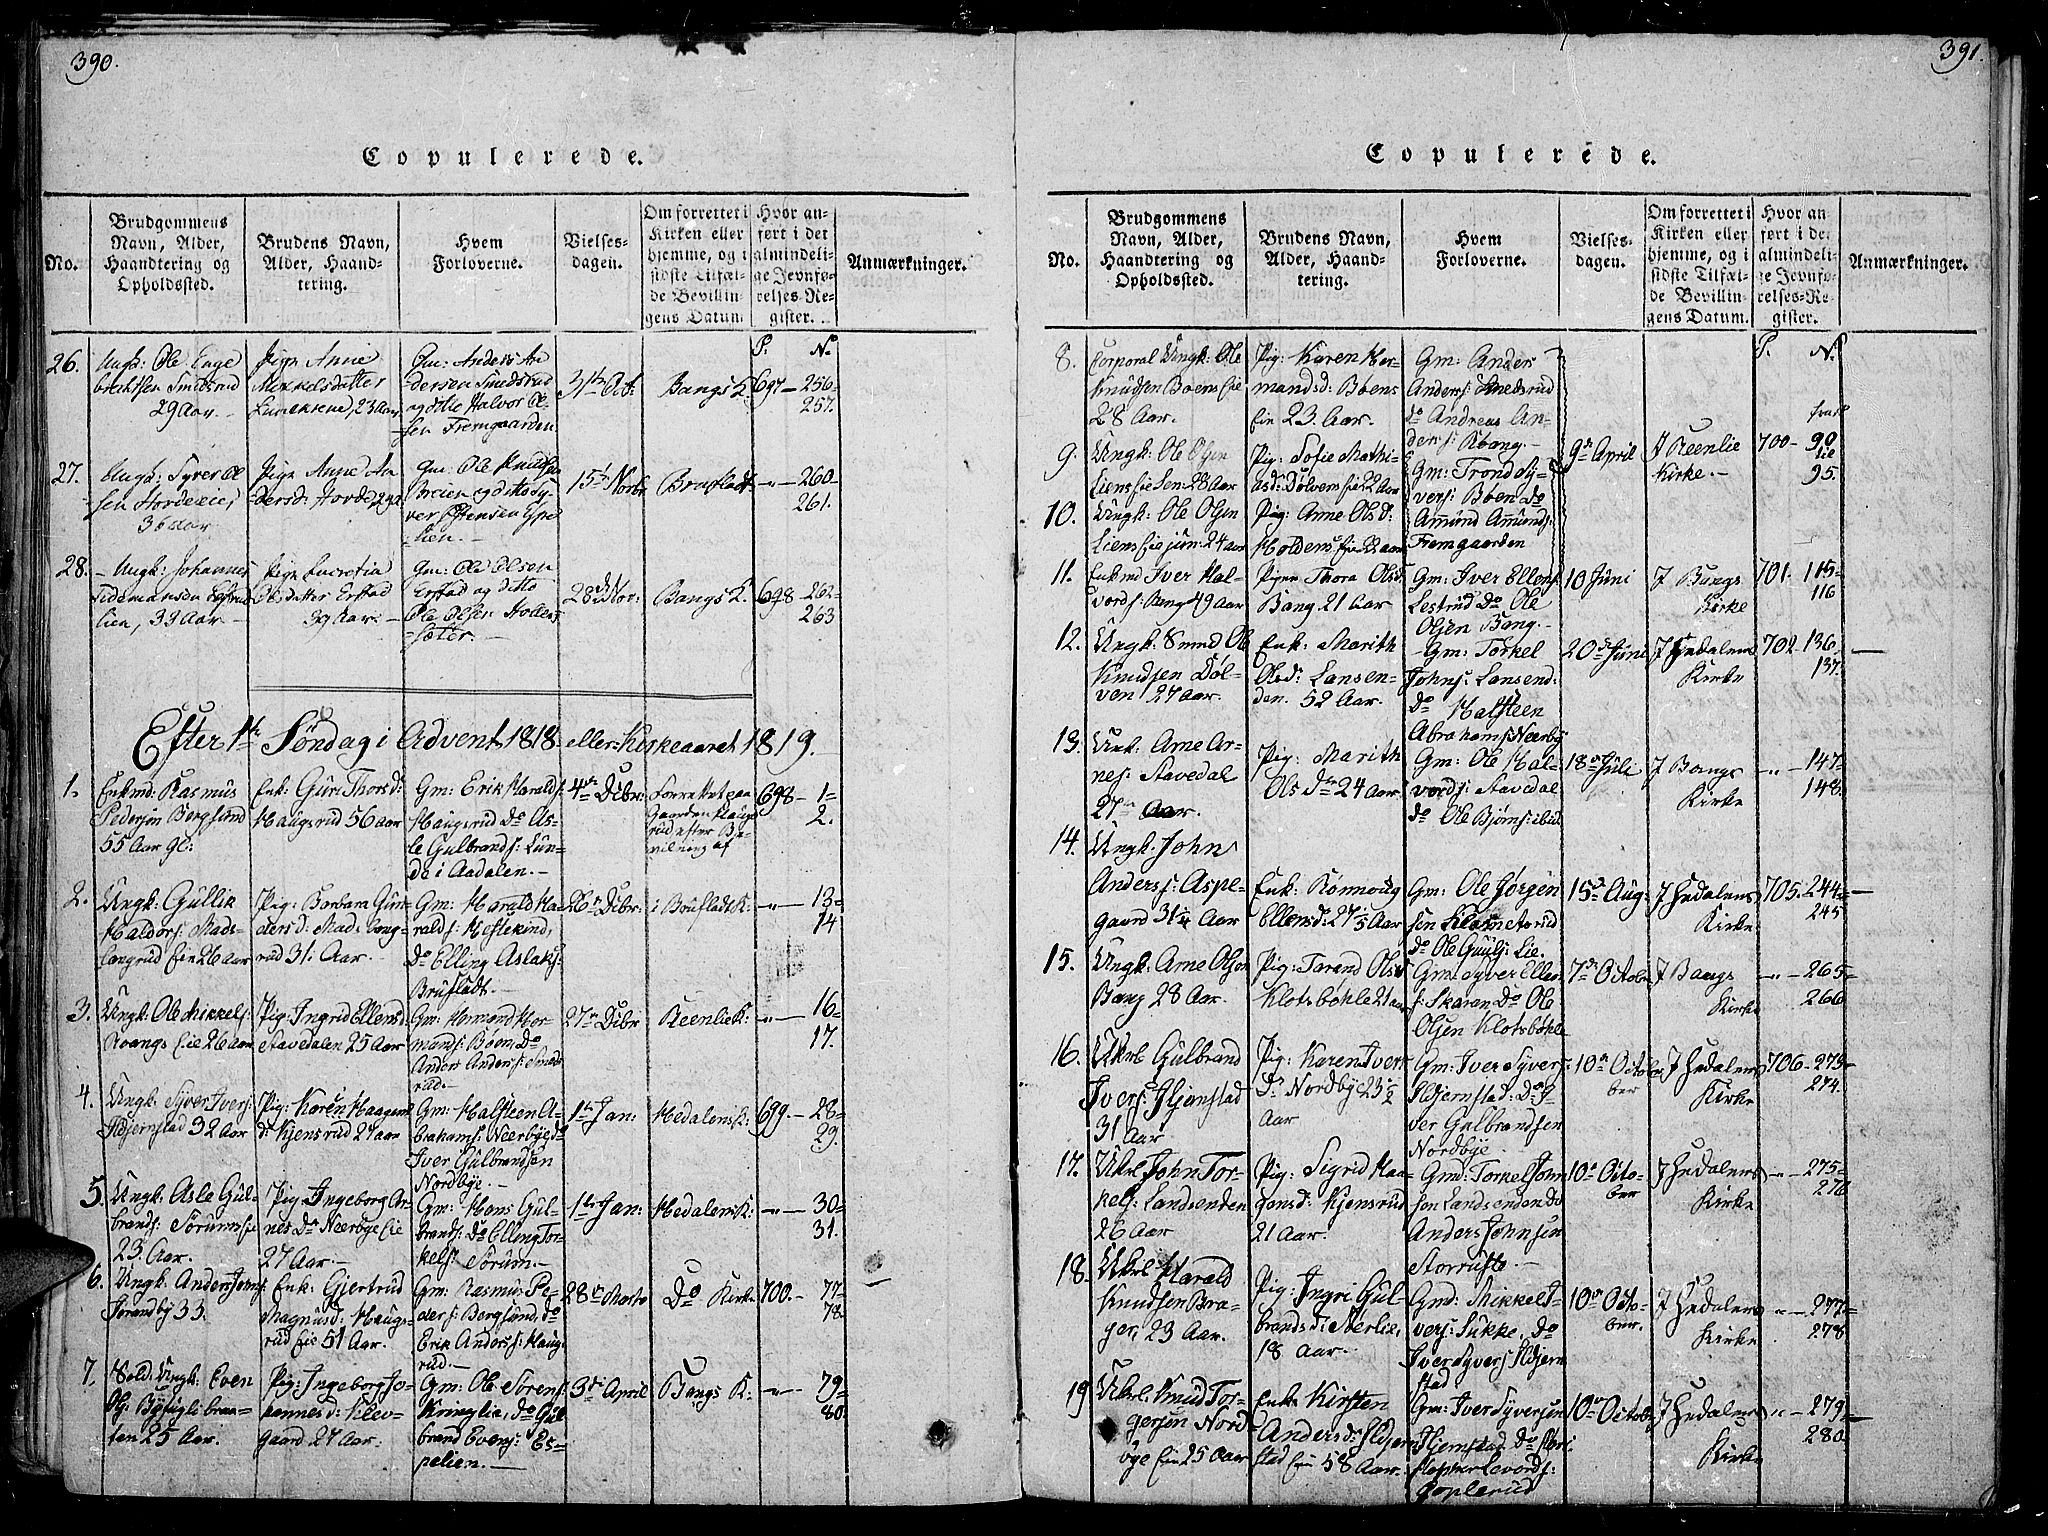 390.
Copulerede.
No.
Brudgommens Navn, Alder, Haandtering og Opholdssted.
Brudens Navn, Alder, Haandtering.
Hvem Forloverne.
Vielsesdagen.
Om forrettet i Kirken eller hjemme, og i sidste Tilfælde Bevillingens Datum.
Hvor anført i det almindelige Jevnførelses-Register.
Anmærkninger.
P. No.
26.
Ungk: Ole Enge
brechtsen Smedsrud
29 Aar. –
Pign Anne
Mikkelsdatter
23 Aar,
Gm: Anders An
dersen Smedsrud
og ditto Halvor Ol
sen Fremgaarden
31te Oct:
Bangs K.
697 – 256
257.
27.
Ungk: Syver Ol
sen Hovdelie,
36 Aar
Pign Anne An
dersd: Hovde
Gm: Ole Knudsen
Breien og ditto Sy
ver Espe
lien. –
15de Novbr
Brufladt
"– 260
261.
28.
Ungk: Johannes
Tidemansen
lien, 33 Aar –
Pign Lucretia
Olsdatter Erstad
39 Aar. –
Gm: Ole Olsen
Erstad og ditto
Ole Olsen Hollen
sæter. –
28de Nov:
Bangs K.
698 – 262
263
Efter 1te Søndag i Advent 1818 eller Kirkeaaret 1819.
1.
Enkmd: Rasmus
Pedersøn Bergsund
55 Aar gl:
Enk: Guri Thorsd:
Haugsrud 56 Aar
Gm: Erik Haralds:
Haugsrud Do As-
le Gulbrands: Lun-
de i Aadalen. –
4de Dcbr:
Forrettet paa
Gaarden Haugs
rud efter Be-
vilning af
698 – 1=
2.
2.
Ungk: Gullik
Haldors: Mads-
langrud Eie 26 Aar
Pig: Barbara Gun-
dersd: Madslang-
rud 31: Aar. –
Gm: Harald Ha-
ralds: Hestekind,
Do Elling Aslaks:
Brufladt. –
26de Dcbr:
i Bruflads K:
"– 13=
14
3.
Ungk: Ole Mikkels:
Roangs Eie 26 Aar
Pig: Ingrid Ellensd:
Stavedalen 25 Aar
Gm: Hermand Her-
mands: Bøen Do
Anders Anders: Smeds
rud –
27de Dcbr
Reenlie K:
"– 16=
17.
4.
Ungk: Syver Ivers:
Hjernstad 32 Aar
Pig: Karen Haagens
d: Kjensrud 27 Aar
Gm: Halsteen A-
brahams: Neerbye do
Iver Gulbrandsen
Nordbye. –
1te Jan:
Hedalens K:
699. – 28=
29.
5.
Ungk: Asle Gul-
brands: Sørums Eie
23. Aar.
Pig: Ingeborg Ar-
nes Do Neerbye Eie
27 Aar. –
Gm: Hans Gul-
brands: Do Elling Tor-
kels: Sørum. –
1te Jan:
Hedalens K:
"– 30=
31.
6.
Ungk: Anders Jons:
33.
Enk: Gjertrud
Magnusd: Haugs-
rud Eie 51 Aar.
Gm: Rasmus Pe-
ders: Bergsund, do
Erik Anders: Haug
rud. –
28de Marts
Do Kirke
700. – 77=
78.
7.
Sold: Ungk: Even
Ol:
sen 25 Aar.
Pig: Ingeborg Jo-
hannesd: Klev-
gaard 27 Aar:
Gm: Ole Sørens:
Kringlie, do Gul
brand Evens: Es-
pelien. –
3de April
Bangs K:
"– 79=
80.
391.
Copulerede.
No.
Brudgommens Navn, Alder, Haandtering og Opholdssted.
Brudens Navn, Alder, Haandtering.
Hvem Forloverne.
Vielsesdagen.
Om forrettet i Kirken eller hjemme, og i sidste Tilfælde Bevillingens Datum.
Hvor anført i det almindelige Jevnførelses-Register.
Anmærkninger.
P. No.
8.
Corporal Ungk: Ole
Knudsen Boens Eie
28 Aar.
Pig: Karen Her-
mandsd: Bøens
Eie 23. Aar.
Gm: Anders
Anders: Smedsrud
do Andreas An-
ders: Roang –
9.
Ungk: Ole Olsen
28 Aar
Pig: Sofie Mathi-
asd: Dølvens Eie 22 Aar
Gm: Trond Sy-
vers: Bøen Do
9de April
I Reenlie
Kirke. –
700 – 90
95.
10.
Ungk: Ole Olsen
Liens Eie jun: 24 Aar
Pig: Anne Olsd:
Holdens Eie 22 Aar
Amund Amunds:
Fremgaarden
11.
Enkmd Iver Hal-
vords: Bang 49 Aar
Pigen Thora Olsd
Bang 21 Aar
Gm: Iver Ellens:
Lestrud Do Ole
Olsen Bang. –
10 Juni
I Bangs
Kirke
701. 115=
116
12.
Ungk: Svend Ol
Knudsen Døl-
ven 27 Aar.
Enk: Marith
Olsd: Lansen-
den. 52 Aar.
Gm: Torkel
Johns: Lansend:
Do Halsteen
Abrahams: Neerby
20de Juni
I Hedalens
Kirke
702. 136.
137.
13.
Unk: Arne Ar-
nes: Stavedal
27 Aar.
Pig: Marith
Ols Do 24 Aar
Gm: Ole Hal-
vords: Stavedal
do Ole Bjørns: ibid
18de Juli
I Bangs
Kirke
"– 147.
148.
14.
Ungk: John
Anders: Aspe-
gaard 31¼ Aar
Enk: Ronnoug
Ellensd: 27⅕ Aar
Gm: Ole Jørgen
sen
do Ole Guuls: Lie.
15de Aug:
I Hedalens
Kirke
705. 244=
245
15.
Ungk: Arne Olsen
Bang 28 Aar.
Pig: Tarand Olsd
Klotsbøhle 21 Aar
Gm: Syver Ellen
s: Skaren Do Ole
Olsen Klotsbøhle
7de Octobr
I Bangs
Kirke
"– 265=
266
16.
Ukrl Gulbrand
Ivers: Hjernstad
31 Aar
Pig: Karen Ivers
Dr Nordbye 23½
Aar
Gm: Iver Syvers:
Hjernstad: Do I-
ver Gulbrandsen
Nordbye
10de Octo
ber
I Hedalens
Kirke
706 – 273=
274.
17.
Ukrl John Tor-
kels: Landsenden
26 Aar
Pig: Sigrid Haa-
gensd: Kjensrud
21 Aar.
Gmd: Torkel John
sen Landsenden Do
Anders Johnsen
Storruste. –
10de Octo-
ber
I Hedalens
Kirke
"– 275=
276
18.
Ukrl Harald
Knudsen Bra-
ger, 23 Aar.
Pig: Ingri Gul-
brandsd: Nerlie,
18 Aar. –
Gmd: Mikkel I-
vers: Sukke, Do
Iver Syvers: Hjern
stad
10de Octo-
ber.
I Hedalens
Kirke
"– 277=
278
19
Ukrl: Knud Tor-
gersøn Nord-
bye Eie 25 Aar
Enk: Kirsten
Andersd: Hjern
stad Eie 58 Aar.
Gm: Iver Syversøn
Hjernstad Do Kri-
stopher Levords:
Goplerud
10de Octobr
I Hedalens
Kirke
"– 279=
280.